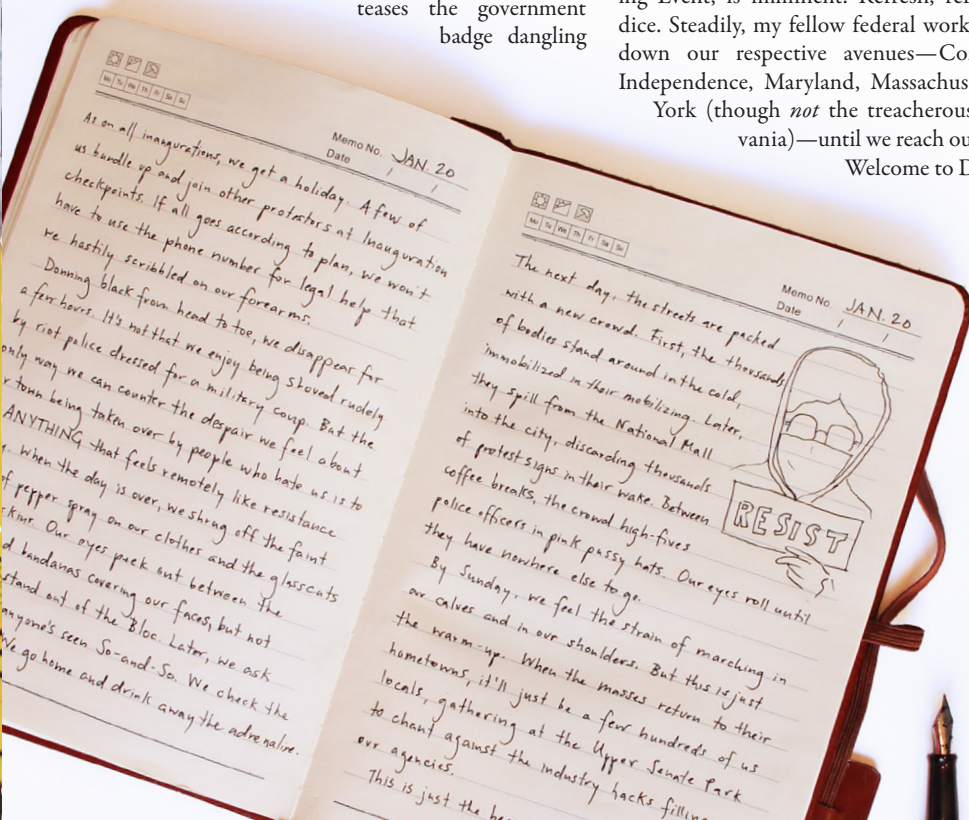 teases the government
badge dangling
ing Event, is imminent. Refresh,
dice. Steadily, my fellow federal work
down our respective avenues—Co
Independence, Maryland, Massachus
York (though not the treacherous
vania)—until we reach ou
Welcome to D
Mo Tu We Th Fr Sa Su
Memo No. JAN. 20
Date / /
As on all inaugurations, we get a holiday. A few of
us bundle up and join other protestors at Inauguration
checkpoints. If all goes according to plan, we won't
have to use the phone number for legal help that
we hastily scribbled on our forearms.
Donning black from head to toe, we disappear for
a few hours. It's not that we enjoy being shoved rudely
by riot police dressed for a military coup. But the
only way we can counter the despair we feel about
r town being taken over by people who hate us is to
ANYTHING that feels remotely like resistance
. When the day is over, we shrug off the faint
of pepper spray on our clothes and the glasscuts
kins. Our eyes peek out between the
d bandanas covering our faces, but not
stand out of the Bloc. Later, we ask
anyone's seen So-and-So. We check the
We go home and drink away the adrenaline.
Mo Tu We Th Fr Sa Su
Memo No. JAN. 20
Date / /
The next day, the streets are packed
with a new crowd. First, the thousands
of bodies stand around in the cold,
immobilized in their mobilizing. Later,
they spill from the National Mall
into the city, discarding thousands
of protest signs in their wake. Between
coffee breaks, the crowd high-fives
police officers in pink pussy hats. Our eyes roll until
they have nowhere else to go.
By Sunday, we feel the strain of marching in
our calves and in our shoulders. But this is just
the warm-up. When the masses return to their
hometowns, it'll just be a few hundreds of us
locals, gathering at the Upper Senate Park
to chant against the industry hacks filling
our agencies.
This is just the be
RESIST